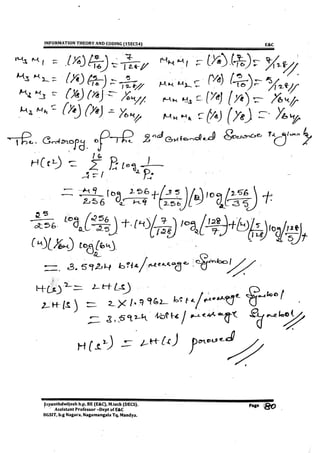 INFORMATION THEORY AND CODING (15EC54) E&C
M3 M1 = (1/8) (7/16) = 7/128 // M4 M1 = (1/8) (7/16) = 7/128 //
M3 M2 = (1/8) (5/16) = 5/128 // M4 M2 = (1/8) (5/16) = 5/128 //
M3 M3 = (1/8) (1/8) = 1/64 // M4 M3 = (1/8) (1/8) = 1/64 //
M3 M4 = (1/8) (1/8) = 1/64 // M4 M4 = (1/8) (1/8) = 1/64 //
The Entropy of The 2nd Extended Source is given by
H(s²) = 16 Σ i=1 Pi log 1/Pi
= 49/256 log 256/49 + (35/256)(2) log (256/35) +
25/256 log (256/25) + (4)(7/128) log2 (128/7) + (4)(5/128) log2 (128/5) +
(4)(1/64) log (64)
= 3.5924 bits/message symbol //
H(s)² = 2H(s)
2H(s) = 2 × 1.7962 bits/message symbol
= 3.5924 bits/message symbol //
H(s²) = 2H(s) proved //
Jayanthdwijesh h.p, BE (E&C), M.tech (DECS).
Assistant Professor –Dept of E&C
BGSIT, b.g Nagara, Nagamangala Tq, Mandya.
Page 80